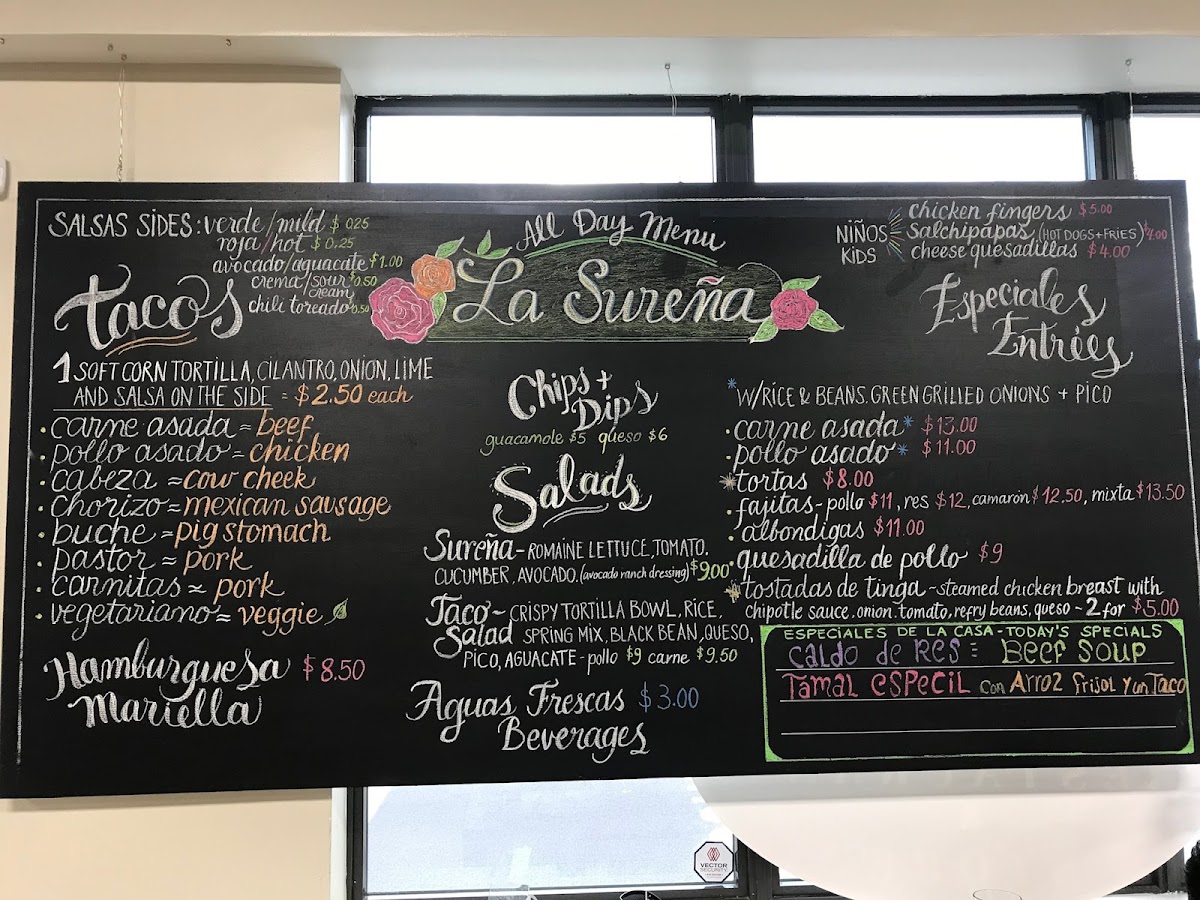 SALSAS SIDES: verde/mild $ 025
roja/hot $ 0,25
avocado/aguacate $1.00
crema/sour cream $0.50
chili toreado 0.50
Tacos
1 SOFT CORN TORTILLA, CILANTRO, ONION, LIME
AND SALSA ON THE SIDE = $2.50 each
· carne asada ≈ beef
· pollo asado ≈ chicken
· cabeza ≈ cow cheek
· chorizo ≈ mexican sausage
· buche ≈ pig stomach
· pastor ≈ pork
· carnitas ≈ pork
· vegetariano ≈ veggie
Hamburguesa $8.50
Mariella
All Day Menu
La Sureña
Chips +
Dips
guacamole $5 queso $6
Salads
Sureña - ROMAINE LETTUCE, TOMATO.
CUCUMBER, AVOCADO. (avocado ranch dressing) $9.00
Taco ~ CRISPY TORTILLA BOWL, RICE,
Salad SPRING MIX, BLACK BEAN, QUESO,
PICO, AGUACATE - pollo $9 carne $9.50
Aguas Frescas $3.00
Beverages
NIÑOS
KIDS
chicken fingers $5.00
Salchipapas (HOT DOGS + FRIES) $4.00
cheese quesadillas $4.00
Especiales
Entrées
* W/RICE & BEANS. GREEN GRILLED ONIONS + PICO
· carne asada* $13.00
· pollo asado* $11.00
* tortas $8.00
· fajitas - pollo $11, res $12, camarón $12.50, mixta $13.50
· albondigas $11.00
· quesadilla de pollo $9
* tostadas de tinga ~ steamed chicken breast with
chipotle sauce, onion, tomato, refry beans, queso ~ 2 for $5.00
ESPECIALES DE LA CASA - TODAY'S SPECIALS
Caldo de Res = Beef Soup
Tamal especil con Arroz frisol y un Taco
VECTOR
SECURITY